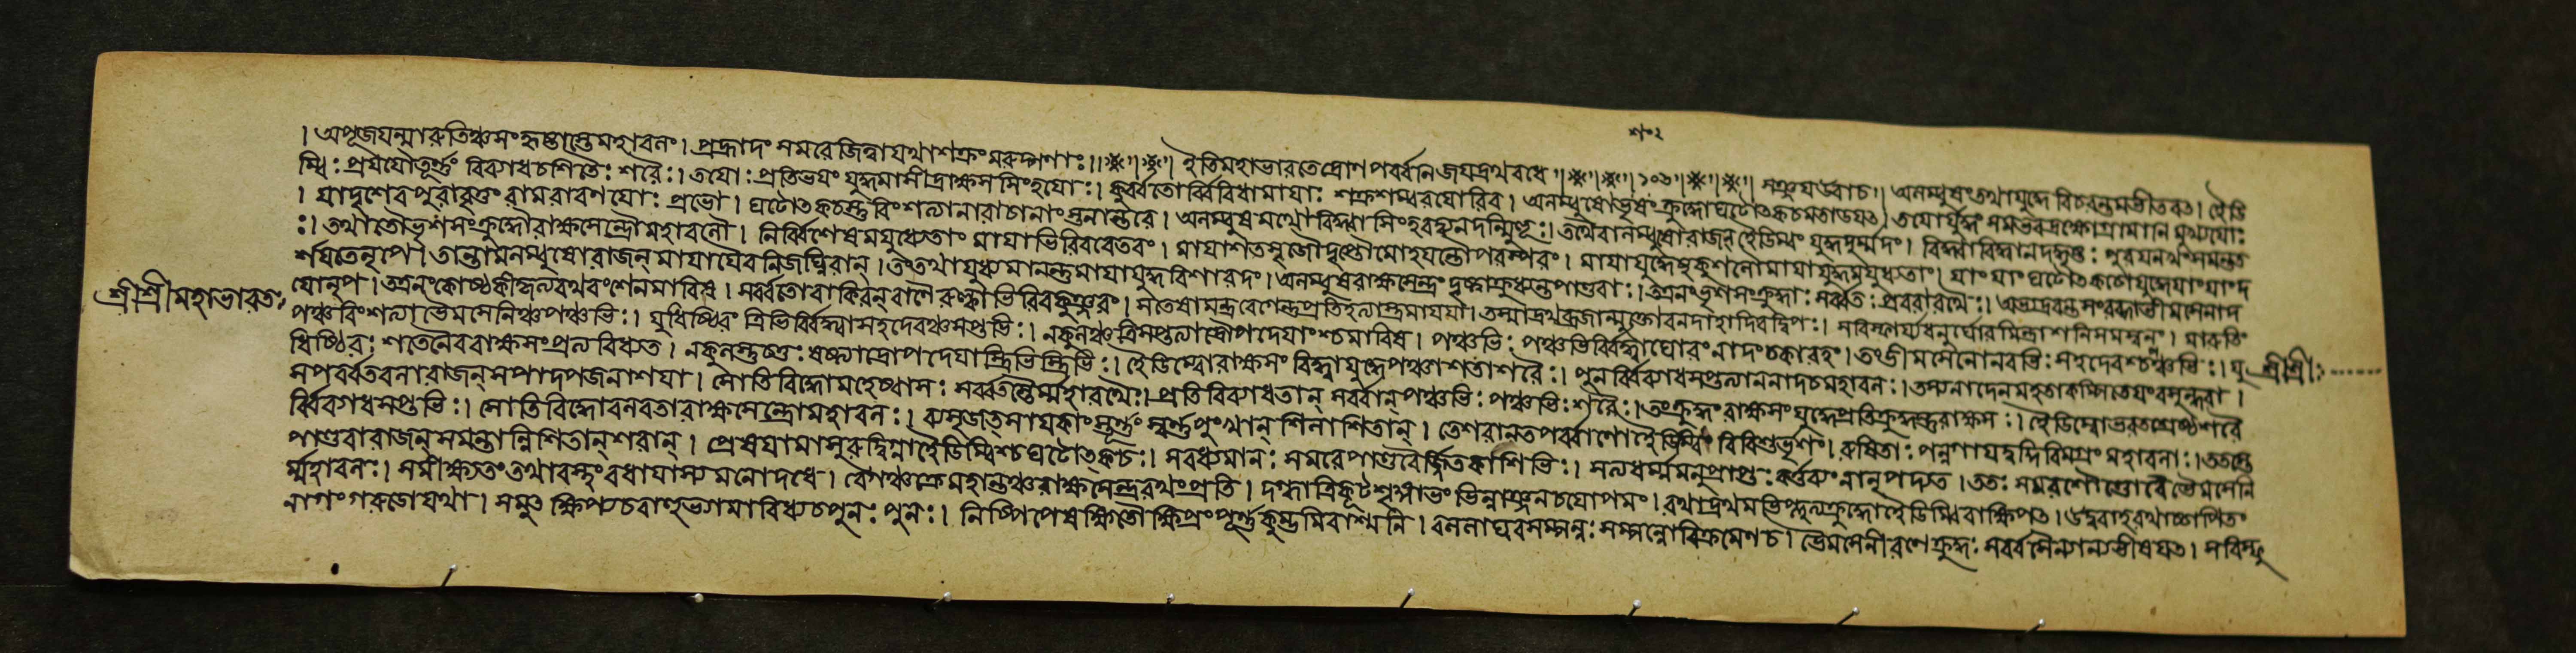 শং২
। অপূজযন্মারুতিঞ্চসংহৃষ্টাস্তেমহাবলং। প্রহ্লাদং সমরেজিত্বাযথাশক্রংমরুদ্গণাঃ।। ইতিমহাভারতেদ্রোণপর্ব্বণিজযদ্রথবধে ॥ ১০৬ ॥ সঞ্জযউবাচ। অলম্বুষংতথাযুদ্ধে বিচরন্তমভীতবৎ। হৈডি
ম্বিঃ প্রযযৌতূর্ণ্ণং বিব্যাধচশিতৈঃ শরৈঃ। তযোঃ প্রতিভযং যুদ্ধমাসীদ্রাক্ষসসিংহযোঃ। কুর্ব্বতোর্ব্বিবিধামাযাঃ শক্রশম্বরযোরিব। অলম্বুষোভৃষংক্রুদ্ধোঘটোৎকচমতাডযৎ। তযোর্যুদ্ধং সমভবদ্রক্ষোগ্রামণিমুখ্যযোঃ
। যাদৃশেবপুরাবৃত্তং রামরাবণযোঃ প্রভো। ঘটোৎকচস্তুবিংশত্যানারাচানাংস্তনান্তরে। অলম্বুষমথোবিদ্ধ্বাসিংহবদ্ব্যনদন্মুহুঃ। তথৈবালম্বুষোরাজন্ হৈডিম্বং যুদ্ধদুর্ম্মদং। বিদ্ধ্বাবিদ্ধ্বানদদ্ধৃষ্টঃ পূরযন্খংসমন্তত
ঃ। তথাতৌভৃশসংক্রুদ্ধৌরাক্ষসেন্দ্রৌমহাবলৌ। নির্ব্বিশেষমযুধ্যেতাং মাযাভিরিতরেতরং। মাযাশতসৃজৌদৃপ্তৌমোহযন্তৌপরস্পরং। মাযাযুদ্ধেষুকুশলৌমাযাযুদ্ধমযুধ্যতাং। যাংযাংঘটোৎকচোযুদ্ধেমাযাংদ
র্শযতেনৃপ। তান্তামলম্বুষোরাজন্ মাযাযৈবনিজঘ্নিবান্। তংতথাযুধ্যমানন্তুমাযাযুদ্ধবিশারদং। অলম্বুষংরাক্ষসেন্দ্রং দৃষ্ট্বাক্রুধ্যন্তপাণ্ডবাঃ। তএনংভৃশসংক্রুদ্ধাঃ সর্ব্বতঃ প্রবরারথৈঃ। অভ্যদ্রবন্তসংরব্ধাভীমসেনাদ
যোনৃপ। তএনংকোষ্ঠকীকৃত্যরথবংশেনমারিষ। সর্ব্বতোব্যকিরন্বাণৈ রুল্কাভিরিবকুঞ্জরং। সতেষামস্ত্রবেগেন্তুপ্রতিহত্যাস্ত্রমাযযা। তস্মাদ্রথব্রজান্মুক্তোবনদাহাদিবদ্বিপঃ। সবিস্ফার্য্যধনুর্ঘোরমিন্দ্রাশনিসমস্বনং। মারুতিং
শ্রীশ্রীমহাভারত
পঞ্চবিংশত্যাভৈমসেনিঞ্চপঞ্চভিঃ। যুধিষ্ঠিরং ত্রিভির্বিদ্ধ্বাসহদেবঞ্চসপ্তভিঃ। নকুলঞ্চত্রিসপ্তত্যাদ্রৌপদেযাংশ্চমারিষ। পঞ্চভিঃ পঞ্চভির্বিদ্ধ্বাঘোরংনাদংচকারহ। তংভীমসেনোনবভিঃ সহদেবশ্চপঞ্চভিঃ। যু
শ্রীশ্রী
ধিষ্ঠিরঃ শতেনৈবরাক্ষসংপ্রত্যবিধ্যত। নকুলস্তুচতুঃষষ্ট্যাদ্রৌপদেযাস্ত্রিভিস্ত্রিভিঃ। হৈডিম্বোরাক্ষসং বিদ্ধ্বাযুদ্ধেপঞ্চাশতাশরৈঃ। পুনর্ব্বিব্যাধসপ্তত্যাননাদচমহাবলঃ। তস্যনাদেনমহতাকম্পিতেযংবসুন্ধরা।
সপর্ব্বতবনারাজন্ সপাদপজলাশযা। সোতিবিদ্ধোমহেষ্বাসঃ সর্ব্বতস্তৈর্ম্মহারথৈঃ। প্রতিবিব্যাধতান্ সর্ব্বান্ পঞ্চভিঃ পঞ্চভিঃ শরৈঃ। তংক্রুদ্ধংরাক্ষসংযুদ্ধেপ্রতিক্রুদ্ধস্তুরাক্ষসঃ। হৈডিম্বোভরতশ্রেষ্ঠশরৈ
র্ব্বিব্যাধসপ্তভিঃ। সোতিবিদ্ধোবলবতারাক্ষসেন্দ্রোমহাবলঃ। ব্যসৃজৎসাযকাংস্তূর্ণ্ণং স্বর্ণ্ণপুংখান্ শিলাশিতান্। তেশরানতপর্ব্বাণোহৈডিম্বিং বিবিশুর্ভৃশং। রুষিতাঃ পন্নগাযদ্বদ্গিরিমগ্রং মহাবলাঃ। ততস্তে
পাণ্ডবারাজন্ সমন্তান্নিশিতান্ শরান্। প্রেষযামাসুরুদ্বিগ্নাহৈডিম্বিশ্চঘটোৎকচঃ। সবধ্যমানঃ সমরেপাণ্ডবৈর্জ্জিতকাশিভিঃ। মর্ত্যধর্ম্মমনুপ্রাপ্তঃ কর্ত্তব্যংনান্বপদ্যত। ততঃ সমরশৌণ্ডোবৈভৈমসেনি
র্ম্মহাবলঃ। সমীক্ষ্যতংতথাবস্থং বধাযাস্য মনোদধে। বেগঞ্চক্রেমহান্তঞ্চরাক্ষসেন্দ্ররথংপ্রতি। দগ্ধাদ্রিকূটশৃঙ্গাভং ভিন্নাঞ্জনচযোপমং। রথাদ্রথমভিদ্রুত্যক্রুদ্ধোহৈডিম্বিরাক্ষিপৎ। উদ্ববর্হরথাচ্চাপিতং
নাগংগরুডোযথা। সমুৎক্ষিপ্যচবাহুভ্যামাবিধ্যচপুনঃ পুনঃ। নিষ্পিপেষক্ষিতৌক্ষিপ্রংপূর্ণ্ণকুম্ভমিবাশ্মনি। বললাঘবসম্পন্নঃ সম্পন্নোবিক্রমেণচ। ভৈমসেনীরণেক্রুদ্ধঃ সর্ব্বসৈন্যান্যভীষযৎ। সবিস্ফু